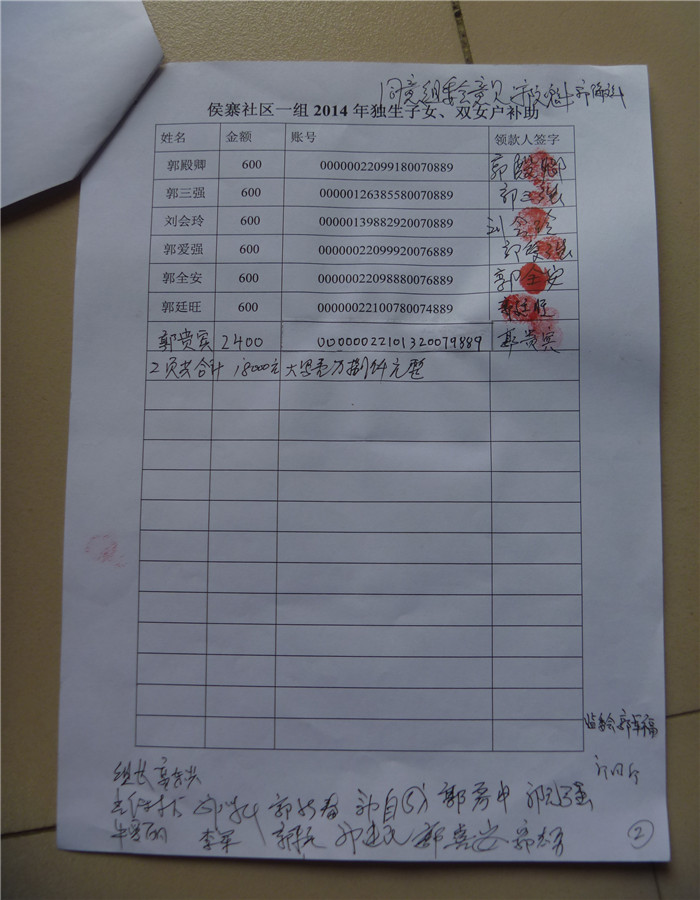 同意组委会意见
侯寨社区一组 2014 年独生子女、双女户补助
姓名 金额 账号 领款人签字
郭殿卿 600 00000022099180070889 郭殿卿
郭三强 600 00000126385580070889 郭三强
刘会玲 600 00000139882920070889 刘会玲
郭爱强 600 00000022099920076889 郭爱强
郭全安 600 00000022098880076889 郭全安
郭廷旺 600 00000022100780074889 郭廷旺
郭贵宾 2400 00000022101320079889 郭贵宾
2页共合计 18000元 大写壹万捌仟元整
监委会 郭幸福
组长
郭秀中
李军 郭喜安
2